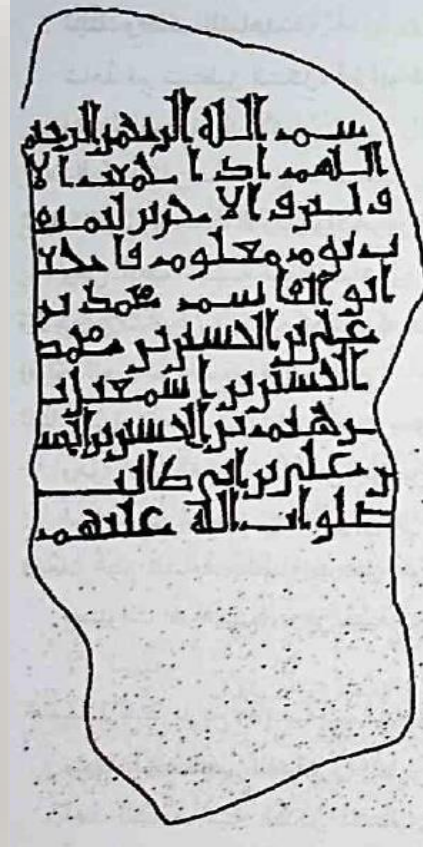 بسم الله الرحمن الرحيم
اللهم اذا جمعت الا
ولين والاخرين لميقا
ت يوم معلوم
ابو القاسم محمد بن
علي بن الحسين بن محمد
الحسين بن اسمعيل بن
ابرهيم بن الحسن بن الحسن
بن علي بن ابي طالب
صلوات الله عليهم